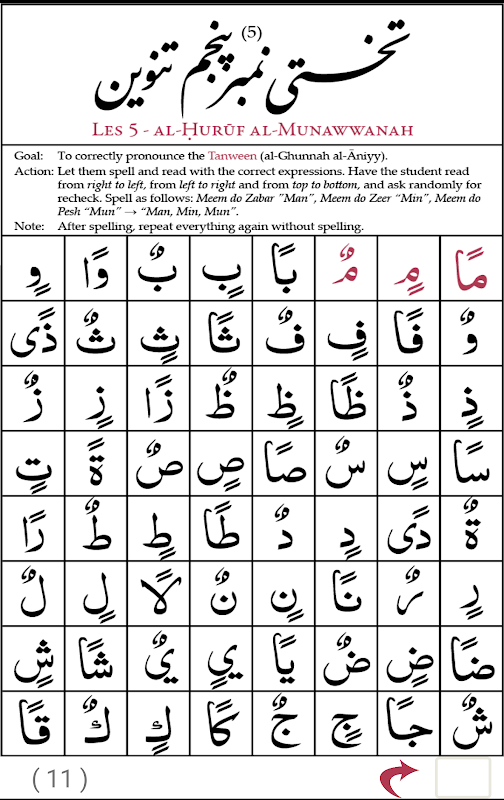 (5)
تختی نمبر پنجم تنوین
Les 5 - al-Ḥurūf al-Munawwanah
Goal: To correctly pronounce the Tanween (al-Ghunnah al-Āniyy).
Action: Let them spell and read with the correct expressions. Have the student read
from right to left, from left to right and from top to bottom, and ask randomly for
recheck. Spell as follows: Meem do Zabar "Man", Meem do Zeer "Min", Meem do
Pesh "Mun" → "Man, Min, Mun".
Note: After spelling, repeat everything again without spelling.
مًا مٍ مٌ بًا بٍ بٌ وًا وٍ
وٌ فًا فٍ فٌ ثًا ثٍ ثٌ ذًى
ذٍ ذٌ ظًا ظٍ ظٌ زًا زٍ زٌ
سًا سٍ سٌ صًا صٍ صٌ ةً تٍ
ةٌ دًى دٍ دٌ طًا طٍ طٌ رًا
رٍ رٌ نًا نٍ نٌ لًا لٍ لٌ
ضًا ضٍ ضٌ يًا يٍ يٌ شًا شٍ
شٌ جًا جٍ جٌ كًا كٍ كٌ قًا
( 11 )